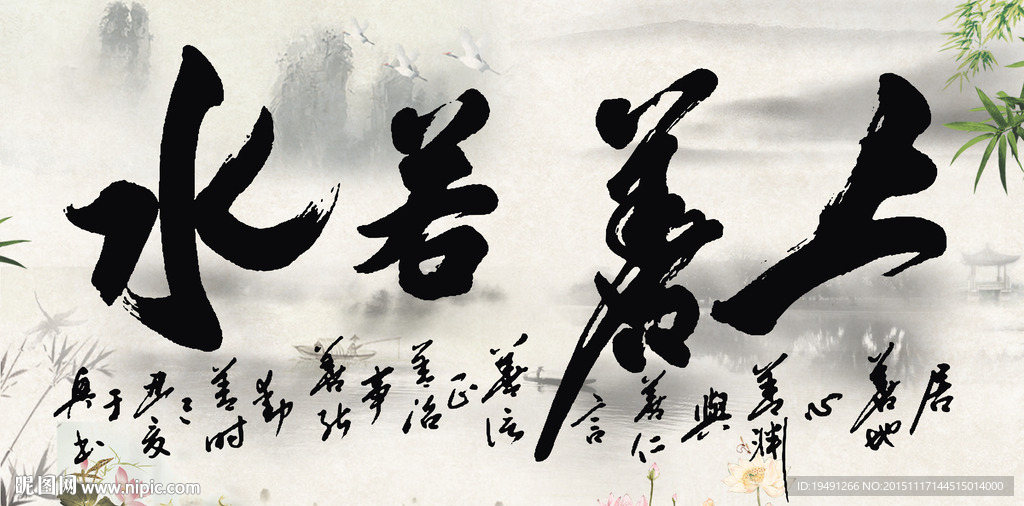 上善若水
居善地心善淵與善仁言善信正善治事善能動善时
昵图网 www.nipic.com
ID:19491266 NO:20151117144515014000